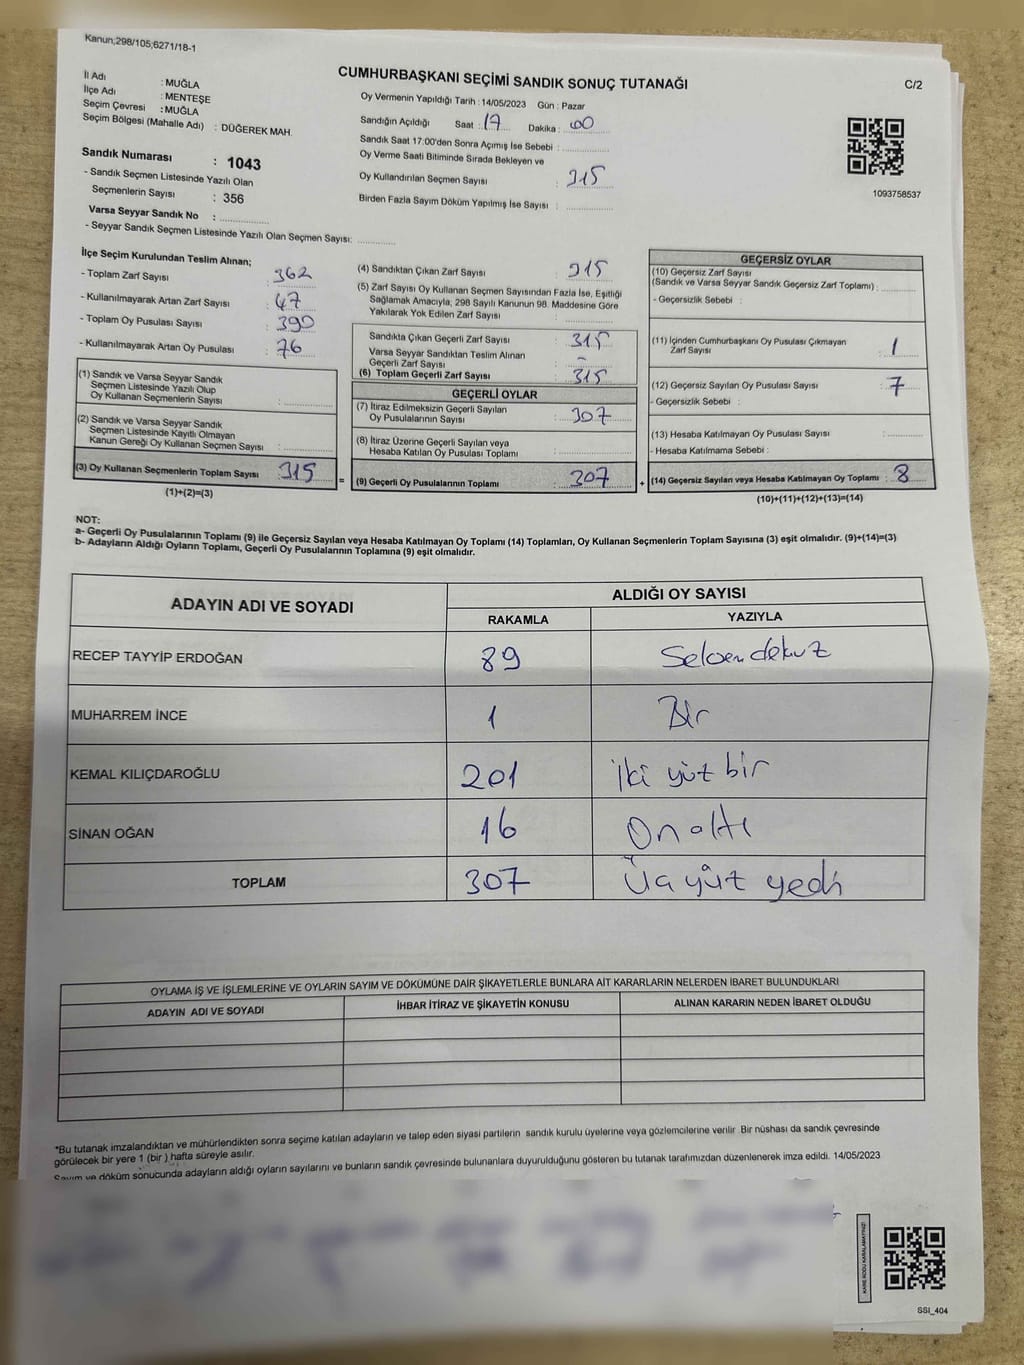 Kanun;298/105;6271/18-1
CUMHURBAŞKANI SEÇİMİ SANDIK SONUÇ TUTANAĞI
C/2
İl Adı : MUĞLA
İlçe Adı : MENTEŞE
Seçim Çevresi : MUĞLA
Seçim Bölgesi (Mahalle Adı) : DÜĞEREK MAH.
Sandık Numarası : 1043
- Sandık Seçmen Listesinde Yazılı Olan
Seçmenlerin Sayısı : 356
Varsa Seyyar Sandık No :
- Seyyar Sandık Seçmen Listesinde Yazılı Olan Seçmen Sayısı:
Oy Vermenin Yapıldığı Tarih : 14/05/2023 Gün : Pazar
Sandığın Açıldığı Saat : 17 Dakika : 00
Sandık Saat 17:00'den Sonra Açımış İse Sebebi :
Oy Verme Saati Bitiminde Sırada Bekleyen ve
Oy Kullandırılan Seçmen Sayısı : 315
Birden Fazla Sayım Döküm Yapılmış İse Sayısı :
1093758537
İlçe Seçim Kurulundan Teslim Alınan;
- Toplam Zarf Sayısı : 362
- Kullanılmayarak Artan Zarf Sayısı : 47
- Toplam Oy Pusulası Sayısı : 390
- Kullanılmayarak Artan Oy Pusulası : 76
(1) Sandık ve Varsa Seyyar Sandık
Seçmen Listesinde Yazılı Olup
Oy Kullanan Seçmenlerin Sayısı :
(2) Sandık ve Varsa Seyyar Sandık
Seçmen Listesinde Kayıtlı Olmayan
Kanun Gereği Oy Kullanan Seçmen Sayısı :
(3) Oy Kullanan Seçmenlerin Toplam Sayısı : 315
(1)+(2)=(3)
(4) Sandıktan Çıkan Zarf Sayısı : 315
(5) Zarf Sayısı Oy Kullanan Seçmen Sayısından Fazla İse, Eşitliği
Sağlamak Amacıyla, 298 Sayılı Kanunun 98. Maddesine Göre
Yakılarak Yok Edilen Zarf Sayısı :
Sandıkta Çıkan Geçerli Zarf Sayısı : 315
Varsa Seyyar Sandıktan Teslim Alınan
Geçerli Zarf Sayısı : -
(6) Toplam Geçerli Zarf Sayısı : 315
GEÇERLİ OYLAR
(7) İtiraz Edilmeksizin Geçerli Sayılan
Oy Pusulalarının Sayısı : 307
(8) İtiraz Üzerine Geçerli Sayılan veya
Hesaba Katılan Oy Pusulası Toplamı :
= (9) Geçerli Oy Pusulalarının Toplamı : 307 +
GEÇERSİZ OYLAR
(10) Geçersiz Zarf Sayısı
(Sandık ve Varsa Seyyar Sandık Geçersiz Zarf Toplamı) :
- Geçersizlik Sebebi :
(11) İçinden Cumhurbaşkanı Oy Pusulası Çıkmayan
Zarf Sayısı : 1
(12) Geçersiz Sayılan Oy Pusulası Sayısı : 7
- Geçersizlik Sebebi :
(13) Hesaba Katılmayan Oy Pusulası Sayısı :
- Hesaba Katılmama Sebebi :
(14) Geçersiz Sayılan veya Hesaba Katılmayan Oy Toplamı : 8
(10)+(11)+(12)+(13)=(14)
NOT:
a- Geçerli Oy Pusulalarının Toplamı (9) ile Geçersiz Sayılan veya Hesaba Katılmayan Oy Toplamı (14) Toplamları, Oy Kullanan Seçmenlerin Toplam Sayısına (3) eşit olmalıdır. (9)+(14)=(3)
b- Adayların Aldığı Oyların Toplamı, Geçerli Oy Pusulalarının Toplamına (9) eşit olmalıdır.
ADAYIN ADI VE SOYADI
ALDIĞI OY SAYISI
RAKAMLA YAZIYLA
RECEP TAYYİP ERDOĞAN 89 Seksendokuz
MUHARREM İNCE 1 Bir
KEMAL KILIÇDAROĞLU 201 iki yüz bir
SİNAN OĞAN 16 On altı
TOPLAM 307 Üç yüz yedi
OYLAMA İŞ VE İŞLEMLERİNE VE OYLARIN SAYIM VE DÖKÜMÜNE DAİR ŞİKAYETLERLE BUNLARA AİT KARARLARIN NELERDEN İBARET BULUNDUKLARI
ADAYIN ADI VE SOYADI İHBAR İTİRAZ VE ŞİKAYETİN KONUSU ALINAN KARARIN NEDEN İBARET OLDUĞU
*Bu tutanak imzalandıktan ve mühürlendikten sonra seçime katılan adayların ve talep eden siyasi partilerin sandık kurulu üyelerine veya gözlemcilerine verilir. Bir nüshası da sandık çevresinde
görülecek bir yere 1 (bir ) hafta süreyle asılır.
Sayım ve döküm sonucunda adayların aldığı oyların sayılarını ve bunların sandık çevresinde bulunanlara duyurulduğunu gösteren bu tutanak tarafımızdan düzenlenerek imza edildi. 14/05/2023
KARE KODU KARALAMAYINIZ!
SSI_404